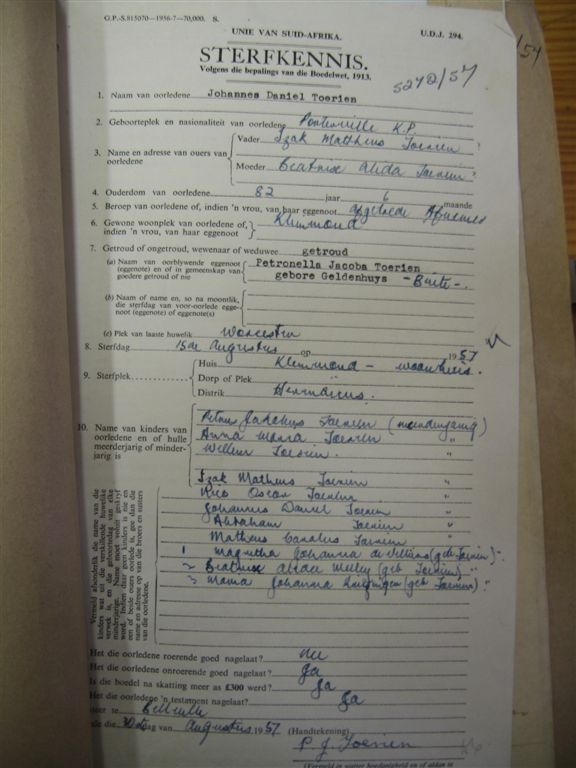 G.P.-S.815070—1956-7—70,000. S.
UNIE VAN SUID-AFRIKA.
U.D.J. 294.
STERFKENNIS.
Volgens die bepalings van die Boedelwet, 1913.
5270/57
1. Naam van oorledene Johannes Daniel Toerien
2. Geboorteplek en nasionaliteit van oorledene Porterville K.P.
3. Name en adresse van ouers van oorledene
Vader Izak Mattheus Toerien
Moeder Beatrix Alida Toerien
4. Ouderdom van oorledene 82 jaar 6 maande
5. Beroep van oorledene of, indien 'n vrou, van haar eggenoot Afgetrede
6. Gewone woonplek van oorledene of, indien 'n vrou, van haar eggenoot Kleinmond
7. Getroud of ongetroud, wewenaar of weduwee getroud
(a) Naam van oorblywende eggenoot (eggenote) en of in gemeenskap van goedere getroud of nie
Petronella Jacoba Toerien
gebore Geldenhuys - Buite -.
(b) Naam of name en, so na moontlik, die sterfdag van voor-oorlede eggenoot (eggenote) of eggenote(s)
(c) Plek van laaste huwelik Worcester
8. Sterfdag 15de Augustus op 1957
9. Sterfplek
Huis Kleinmond - woonhuis.
Dorp of Plek "
Distrik Hermanus.
10. Name van kinders van oorledene en of hulle meerderjarig of minderjarig is
Petrus Jakobus Toerien (meerderjarig)
Anna Maria Toerien "
Willem Toerien. "
Izak Matheus Toerien "
Rico Oscar Toerien "
Johannes Daniel Toerien "
Abraham Toerien "
Matheus Toerien "
1 Johanna de Villiers (geb Toerien) "
2 Beatrix (geb Toerien) "
3 Maria Johanna (geb Toerien) "
Vermeld afsonderlik die name van die kinders wat uit die verskillende huwelike verwek is, en die geboortedag van elke minderjarige. Name moet voluit geskryf word. Indien daar geen kinders is nie en een of beide ouers oorlede is, gee dan die name en adresse op van die broers en susters van die oorledene.
Het die oorledene roerende goed nagelaat? Nee
Het die oorledene onroerende goed nagelaat? Ja
Is die boedel na skatting meer as £300 werd? Ja
Het die oorledene 'n testament nagelaat? Ja
te Bellville
die 30ste dag van Augustus 1957
(Handtekening) P. J. Toerien